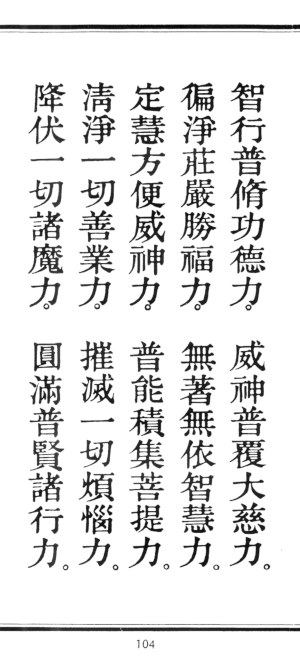 智行普脩功德力。
威神普覆大慈力。
徧淨莊嚴勝福力。
無著無依智慧力。
定慧方便威神力。
普能積集菩提力。
清淨一切善業力。
摧滅一切煩惱力。
降伏一切諸魔力。
圓滿普賢諸行力。
104